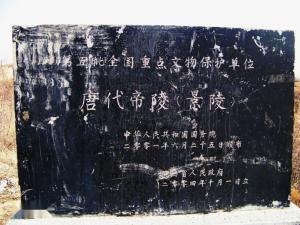 第五批全国重点文物保护单位
唐代帝陵（景陵）
中华人民共和国国务院
二〇〇一年六月二十五日颁布
省人民政府
二〇〇四年十月一日立